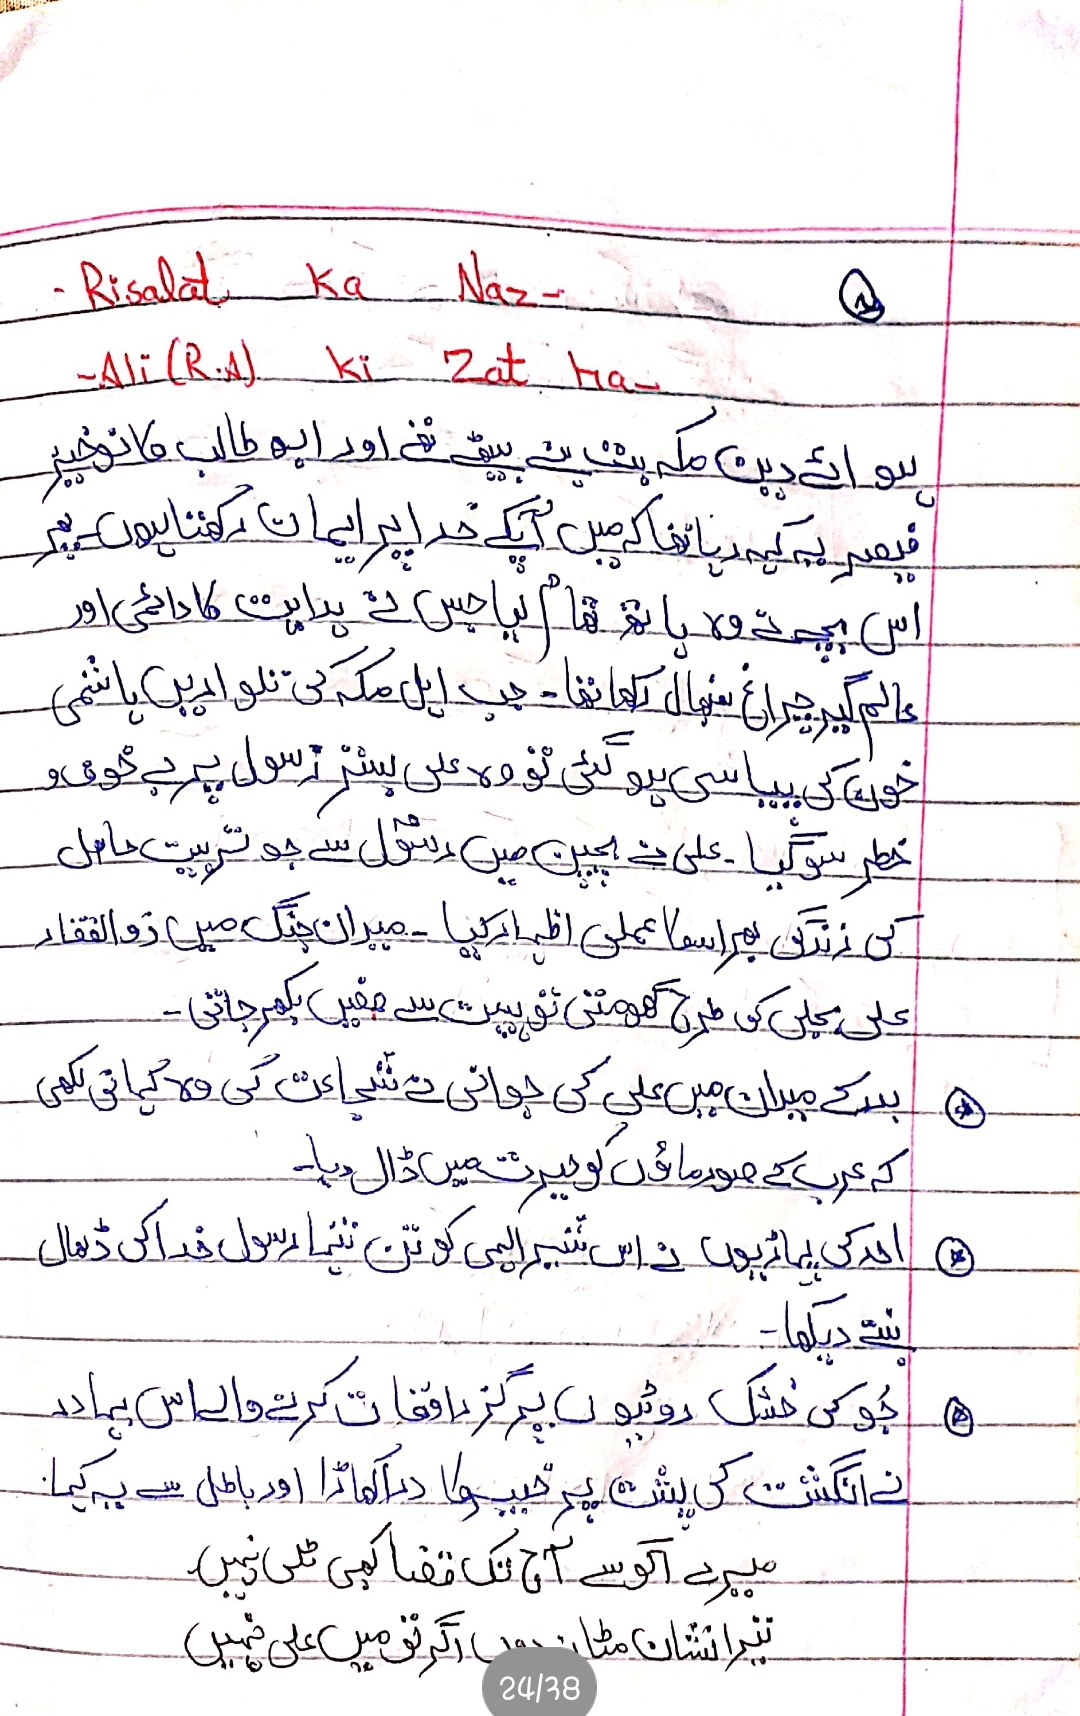 - Risalat Ka - Naz -
- Ali (R.A) Ki Zat Ha -
ہوائے دین مکہ بت بنے بیٹھے تھے اور ابو طالب کا نوخیز
قیصر یہ کہہ رہا تھا کہ میں آپکے خدا پر ایمان رکھتا ہوں۔ پھر
اس بچے نے وہ ہاتھ تھام لیا جس نے ہدایت کا دائمی اور
عالم گیر چراغ سنبھال رکھا تھا۔ جب اہل مکہ کی تلواریں ہاشمی
خون کی پیاسی ہو گئی تو وہ علی بستر رسول پر بے خوف و
خطر سو گیا۔ علی نے بچپن میں رسول سے جو تربیت حاصل
کی زندگی بھر اسکا عملی اظہار کیا۔ میدان جنگ میں ذوالفقار
علی بجلی کی طرح گھومتی تو ہیبت سے صفیں بکھر جاتی۔
بدر کے میدان میں علی کی جوانی نے شجاعت کی وہ کہانی لکھی
کہ عرب کے صورماؤں کو حیرت میں ڈال دیا۔
احد کی پہاڑیوں نے اس شیر الہی کو تن تنہا رسول خدا کی ڈھال
بنتے دیکھا۔
جو کی خشک روٹیوں پر گزر اوقات کرنے والے اس بہادر
نے انگشت کی پشت پر خیبر کا در اکھاڑا اور باطل سے یہ کہا:
میرے آگو سے آج تک قضا کبھی ٹلی نہیں
تیرا نشان مٹا نہ دوں اگر تو میں علی نہیں
24/38